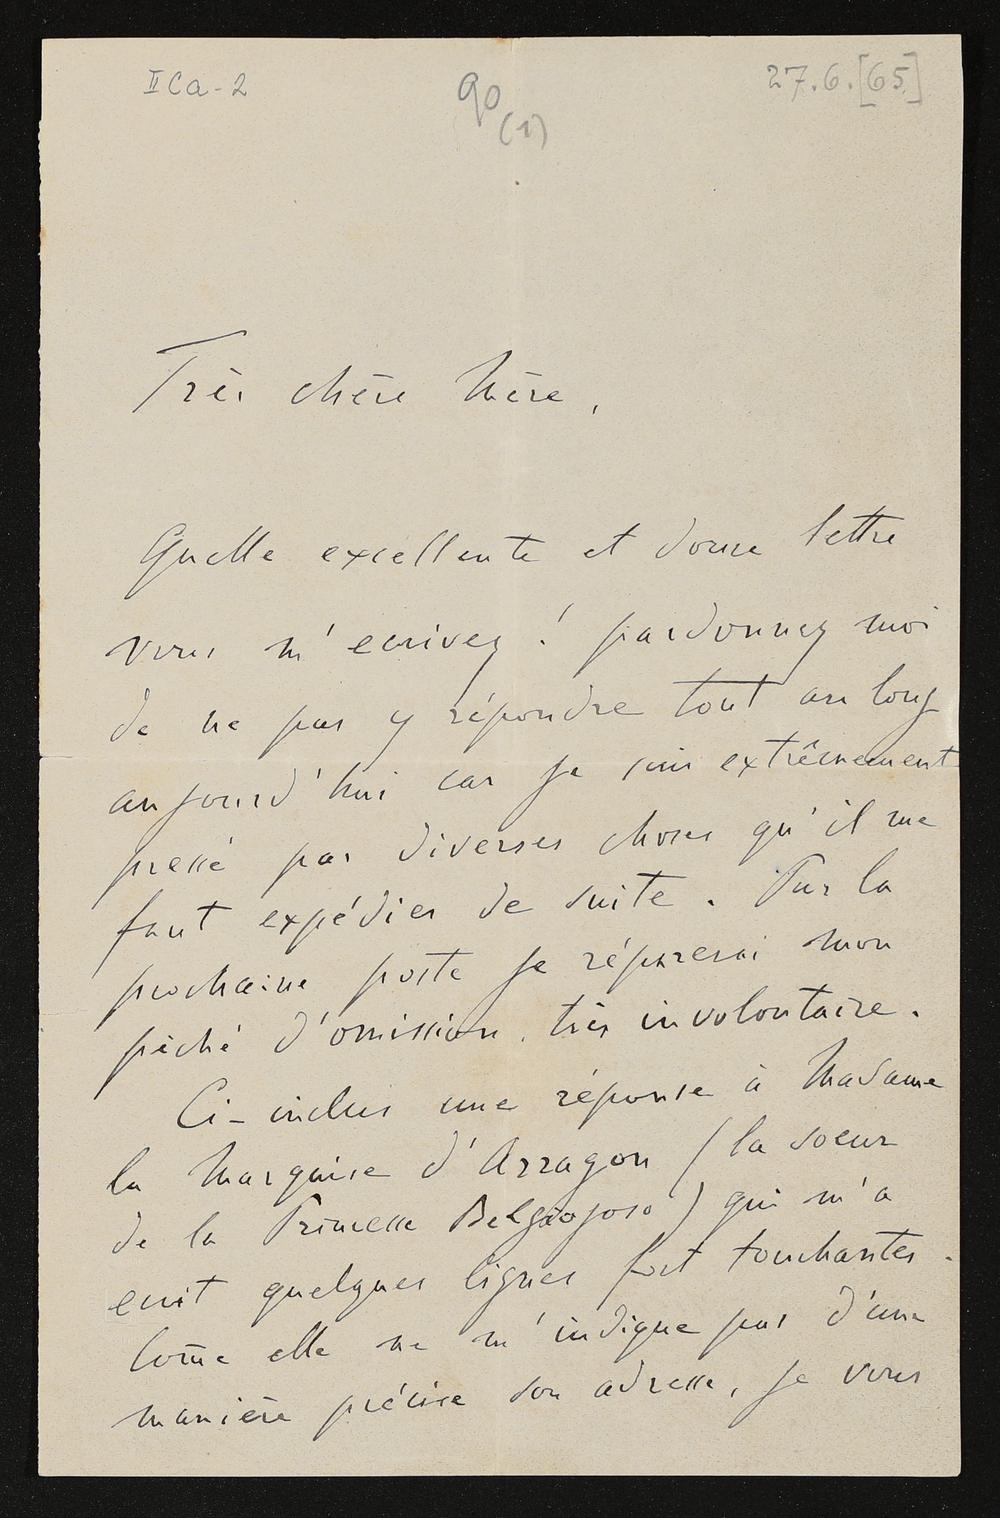 II Ca-2
90
(1)
27.6.[65]
Très chère Mère,
Quelle excellente et douce lettre
vous m'ecrivez ! pardonnez moi
de ne pas y répondre tout au long
aujourd'hui car je suis extrêmement
pressé par diverses choses qu'il me
faut expédier de suite. Par la
prochaine poste je réparerai mon
pêché d'omission, très involontaire.
Ci-inclus une réponse à Madame
la Marquise d'Arragon (la soeur
de la Princesse Belgiojoso) qui m'a
ecrit quelques lignes fort touchantes.
Com̄e elle ne m'indique pas d'une
manière précise son adresse, je vous